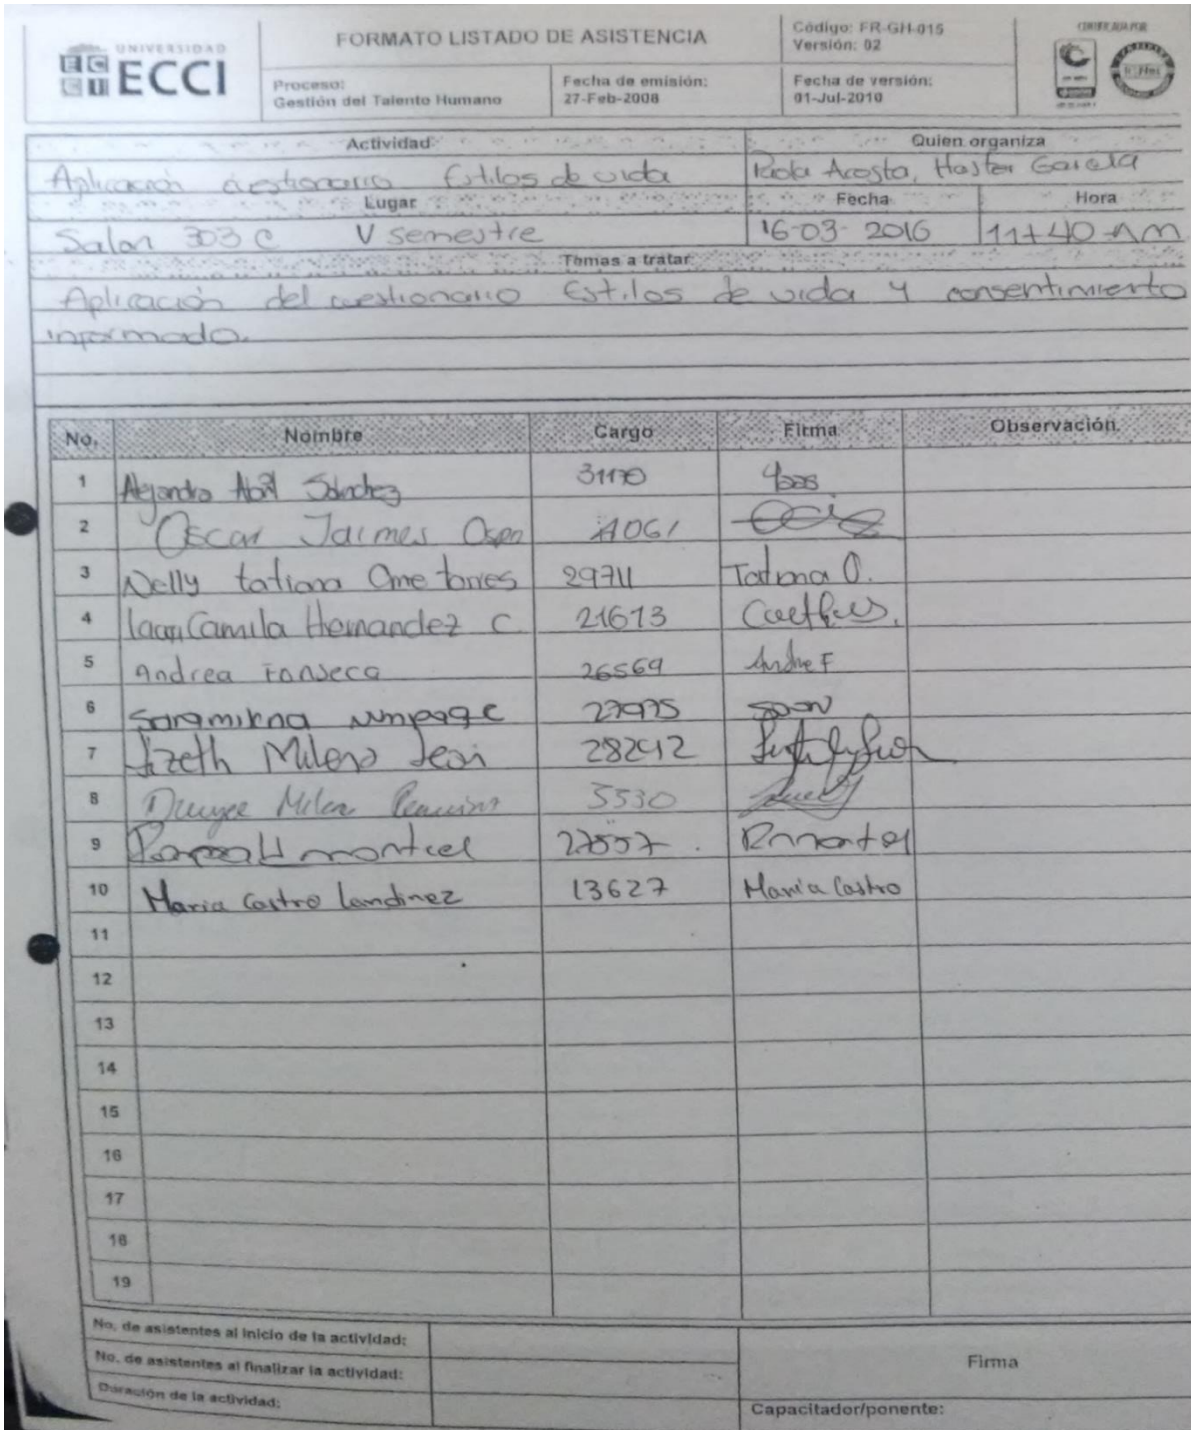 UNIVERSIDAD
ECCI
FORMATO LISTADO DE ASISTENCIA
Código: FR-GH-015
Versión: 02
Proceso:
Gestión del Talento Humano
Fecha de emisión:
27-Feb-2008
Fecha de versión:
01-Jul-2010
Actividad
Quien organiza
Aplicación cuestionario Estilos de vida
Paola Acosta, García
Lugar
Fecha
Hora
Salon 303 C V semestre
16-03-2016
11+40 AM
Temas a tratar
Aplicación del cuestionario Estilos de vida y consentimiento
informado.
No. Nombre Cargo Firma Observación
1 Alejandra Abril Sánchez 31170
2 Oscar Jaimes
3 Nelly tatiana Ome torres 29711 Tatiana O.
4 Camila Hernandez C 21673
5 Andrea Fonseca 26569 Andre F
6 27975
7 Lizeth Milena León 28242
8 Milena 5530
9 montiel
10 Maria Castro Landinez 13627 Maria Castro
11
12
13
14
15
16
17
18
19
No. de asistentes al inicio de la actividad:
No. de asistentes al finalizar la actividad:
Duración de la actividad:
Firma
Capacitador/ponente: